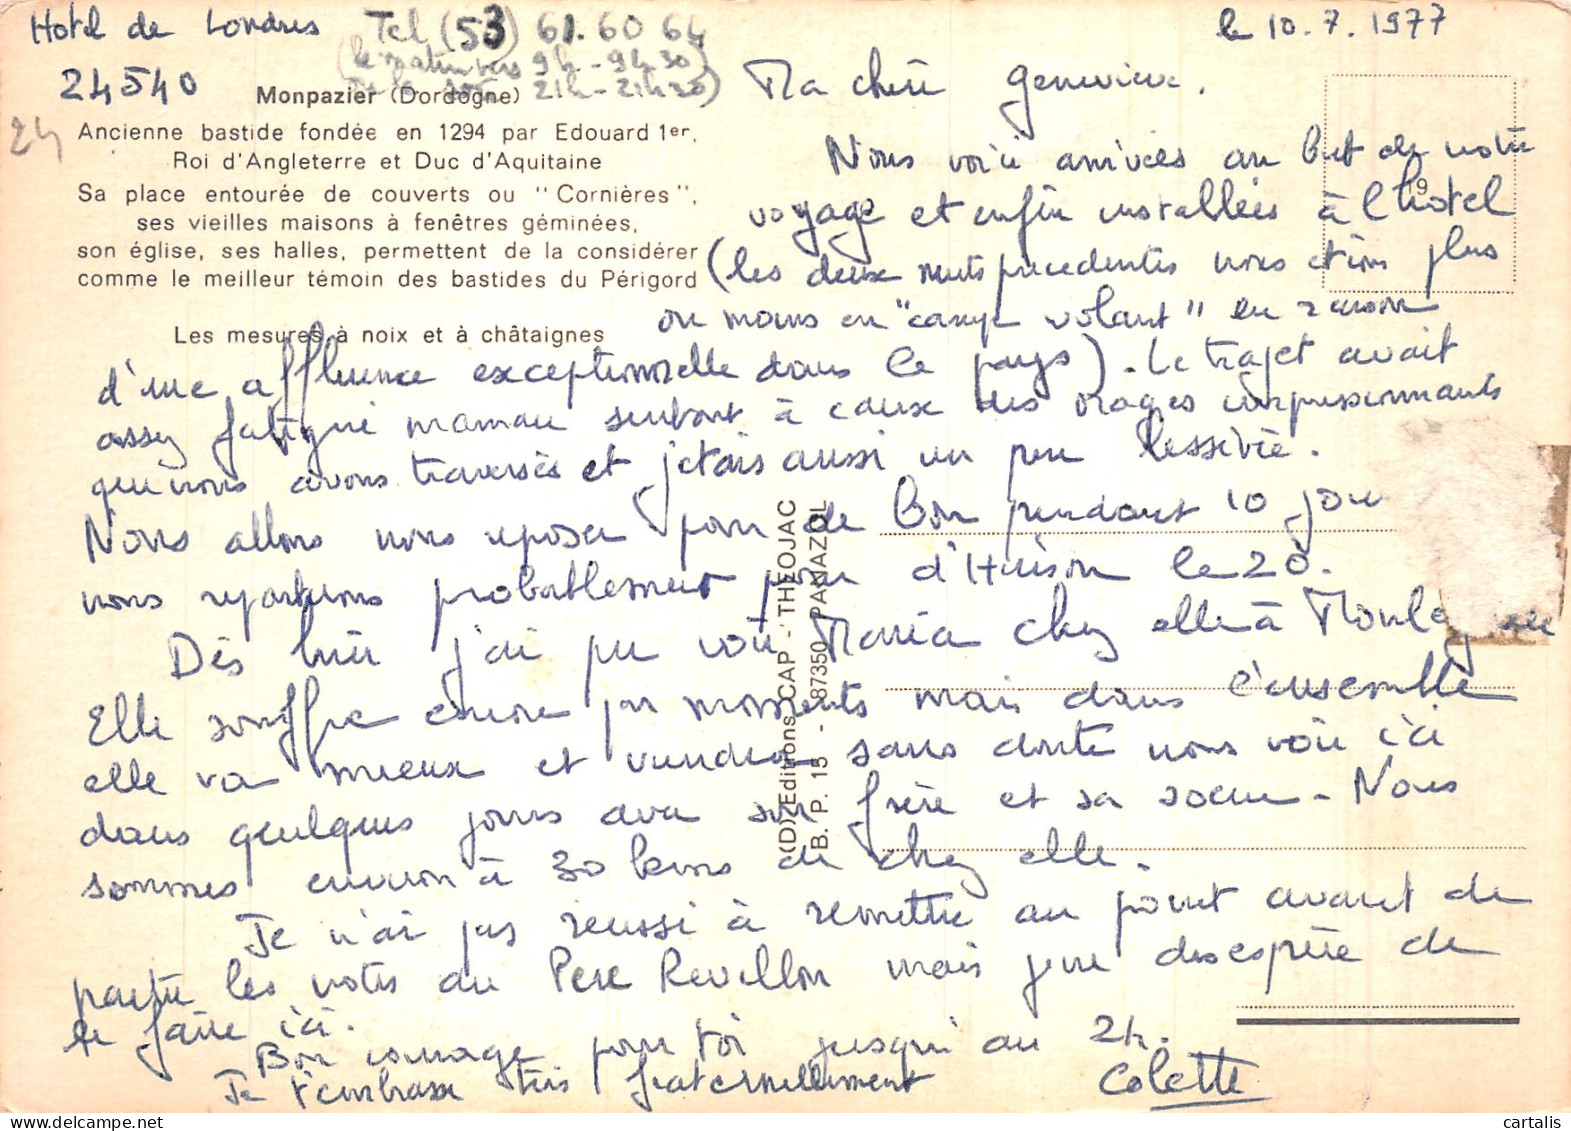 Hotel de Londres Tel (53) 61.60 64
(le matin vers 9h - 9h30)
24540 de le soir 21h - 21h30)
24
le 10.7.1977
Monpazier (Dordogne)
Ancienne bastide fondée en 1294 par Edouard 1er,
Roi d'Angleterre et Duc d'Aquitaine
Sa place entourée de couverts ou "Cornières",
ses vieilles maisons à fenêtres géminées,
son église, ses halles, permettent de la considérer
comme le meilleur témoin des bastides du Périgord
Les mesures à noix et à châtaignes
19
Ma chère Geneviève.
Nous voici arrivées au but de notre
voyage et enfin installées à l'hotel
(les deux nuits précédentes nous étions plus
ou moins en "camp volant" en raison
d'une affluence exceptionnelle dans le pays). Le trajet avait
assez fatigué maman surtout à cause des orages impressionnants
que nous avons traversés et j'étais aussi un peu lessivée.
Nous allons nous reposer pour de bon pendant 10 jou
nous repartirons probablement pour d'Huison le 20.
Dès hier j'ai pu voir Maria chez elle à
Elle souffre encore par moments mais dans l'ensemble
elle va mieux et viendra sans doute nous voir ici
dans quelques jours avec son frère et sa soeur - Nous
sommes environ à 30 kms de chez elle.
Je n'ai pas réussi à remettre au point avant de
partir les notes du Père Revillon mais je ne désespère de
le faire ici.
Bon courage pour toi jusqu'au 24.
Je t'embrasse très fraternellement Colette
(D) Editions CAP - THEOJAC
B. P. 15 - 87350 PANAZOL
cartalis
delcampe.net